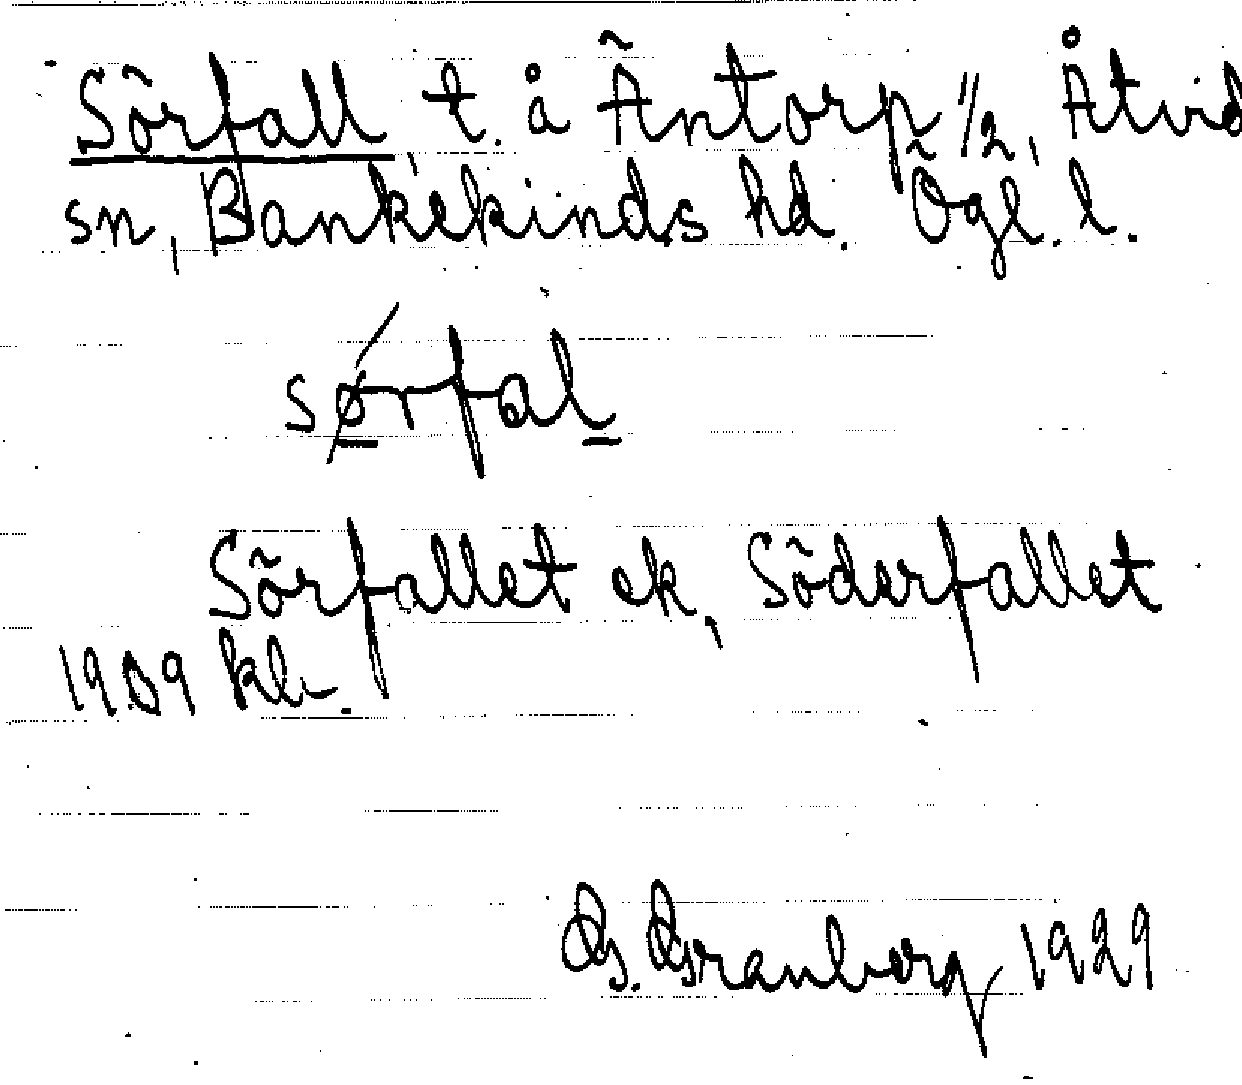 Sörfall t. å Äntorp 1/2, Åtvid
sn, Bankekinds hd. Ögl. l.
sørfal
Sörfallet ek, Söderfallet
1909 kl.
G. Granberg 1929